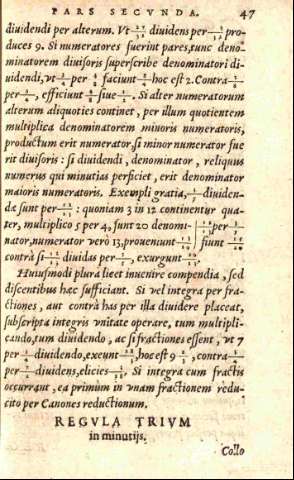 PARS SECVNDA. 47
diuidendi per alterum. Vt diuidens per pro-
duces 9. Si numeratores fuerint pares, tunc deno-
minatorem diuisoris superscribe denominatori di-
uidendi, vt per faciunt hoc est 2. Contra
per efficiunt siue Si alter numeratorum
alterum aliquoties continet, per illum quotientem
multiplica denominatorem minoris numeratoris,
productum erit numerator, si minor numerator fue
rit diuisoris: si diuidendi, denominator, reliquus
numerus qui minutias perficiet, erit denominator
maioris numeratoris. Exempli gratia, diuiden-
da sunt per : quoniam 3 in 12 continentur qua-
ter, multiplico 5 per 4, sunt 20 denomi- per
nator, numerator verò 13, proueniunt fiunt
contrà si diuidas per , exurgunt
Huiusmodi plura licet inuenire compendia, sed
discentibus hæc sufficiant. Si vel integra per fra-
ctiones, aut contrà has per illa diuidere placeat,
subscripta integris vnitate operare, tum multipli-
cando, tum diuidendo, ac si fractiones essent, vt 7
per diuidendo, exeunt , hoc est 9 , contra
per diuidens, elicies . Si integra cum fractis
occurrant, ea primùm in vnam fractionem redu-
cito per Canones reductionum.
REGVLA TRIVM
in minutijs.
Collo